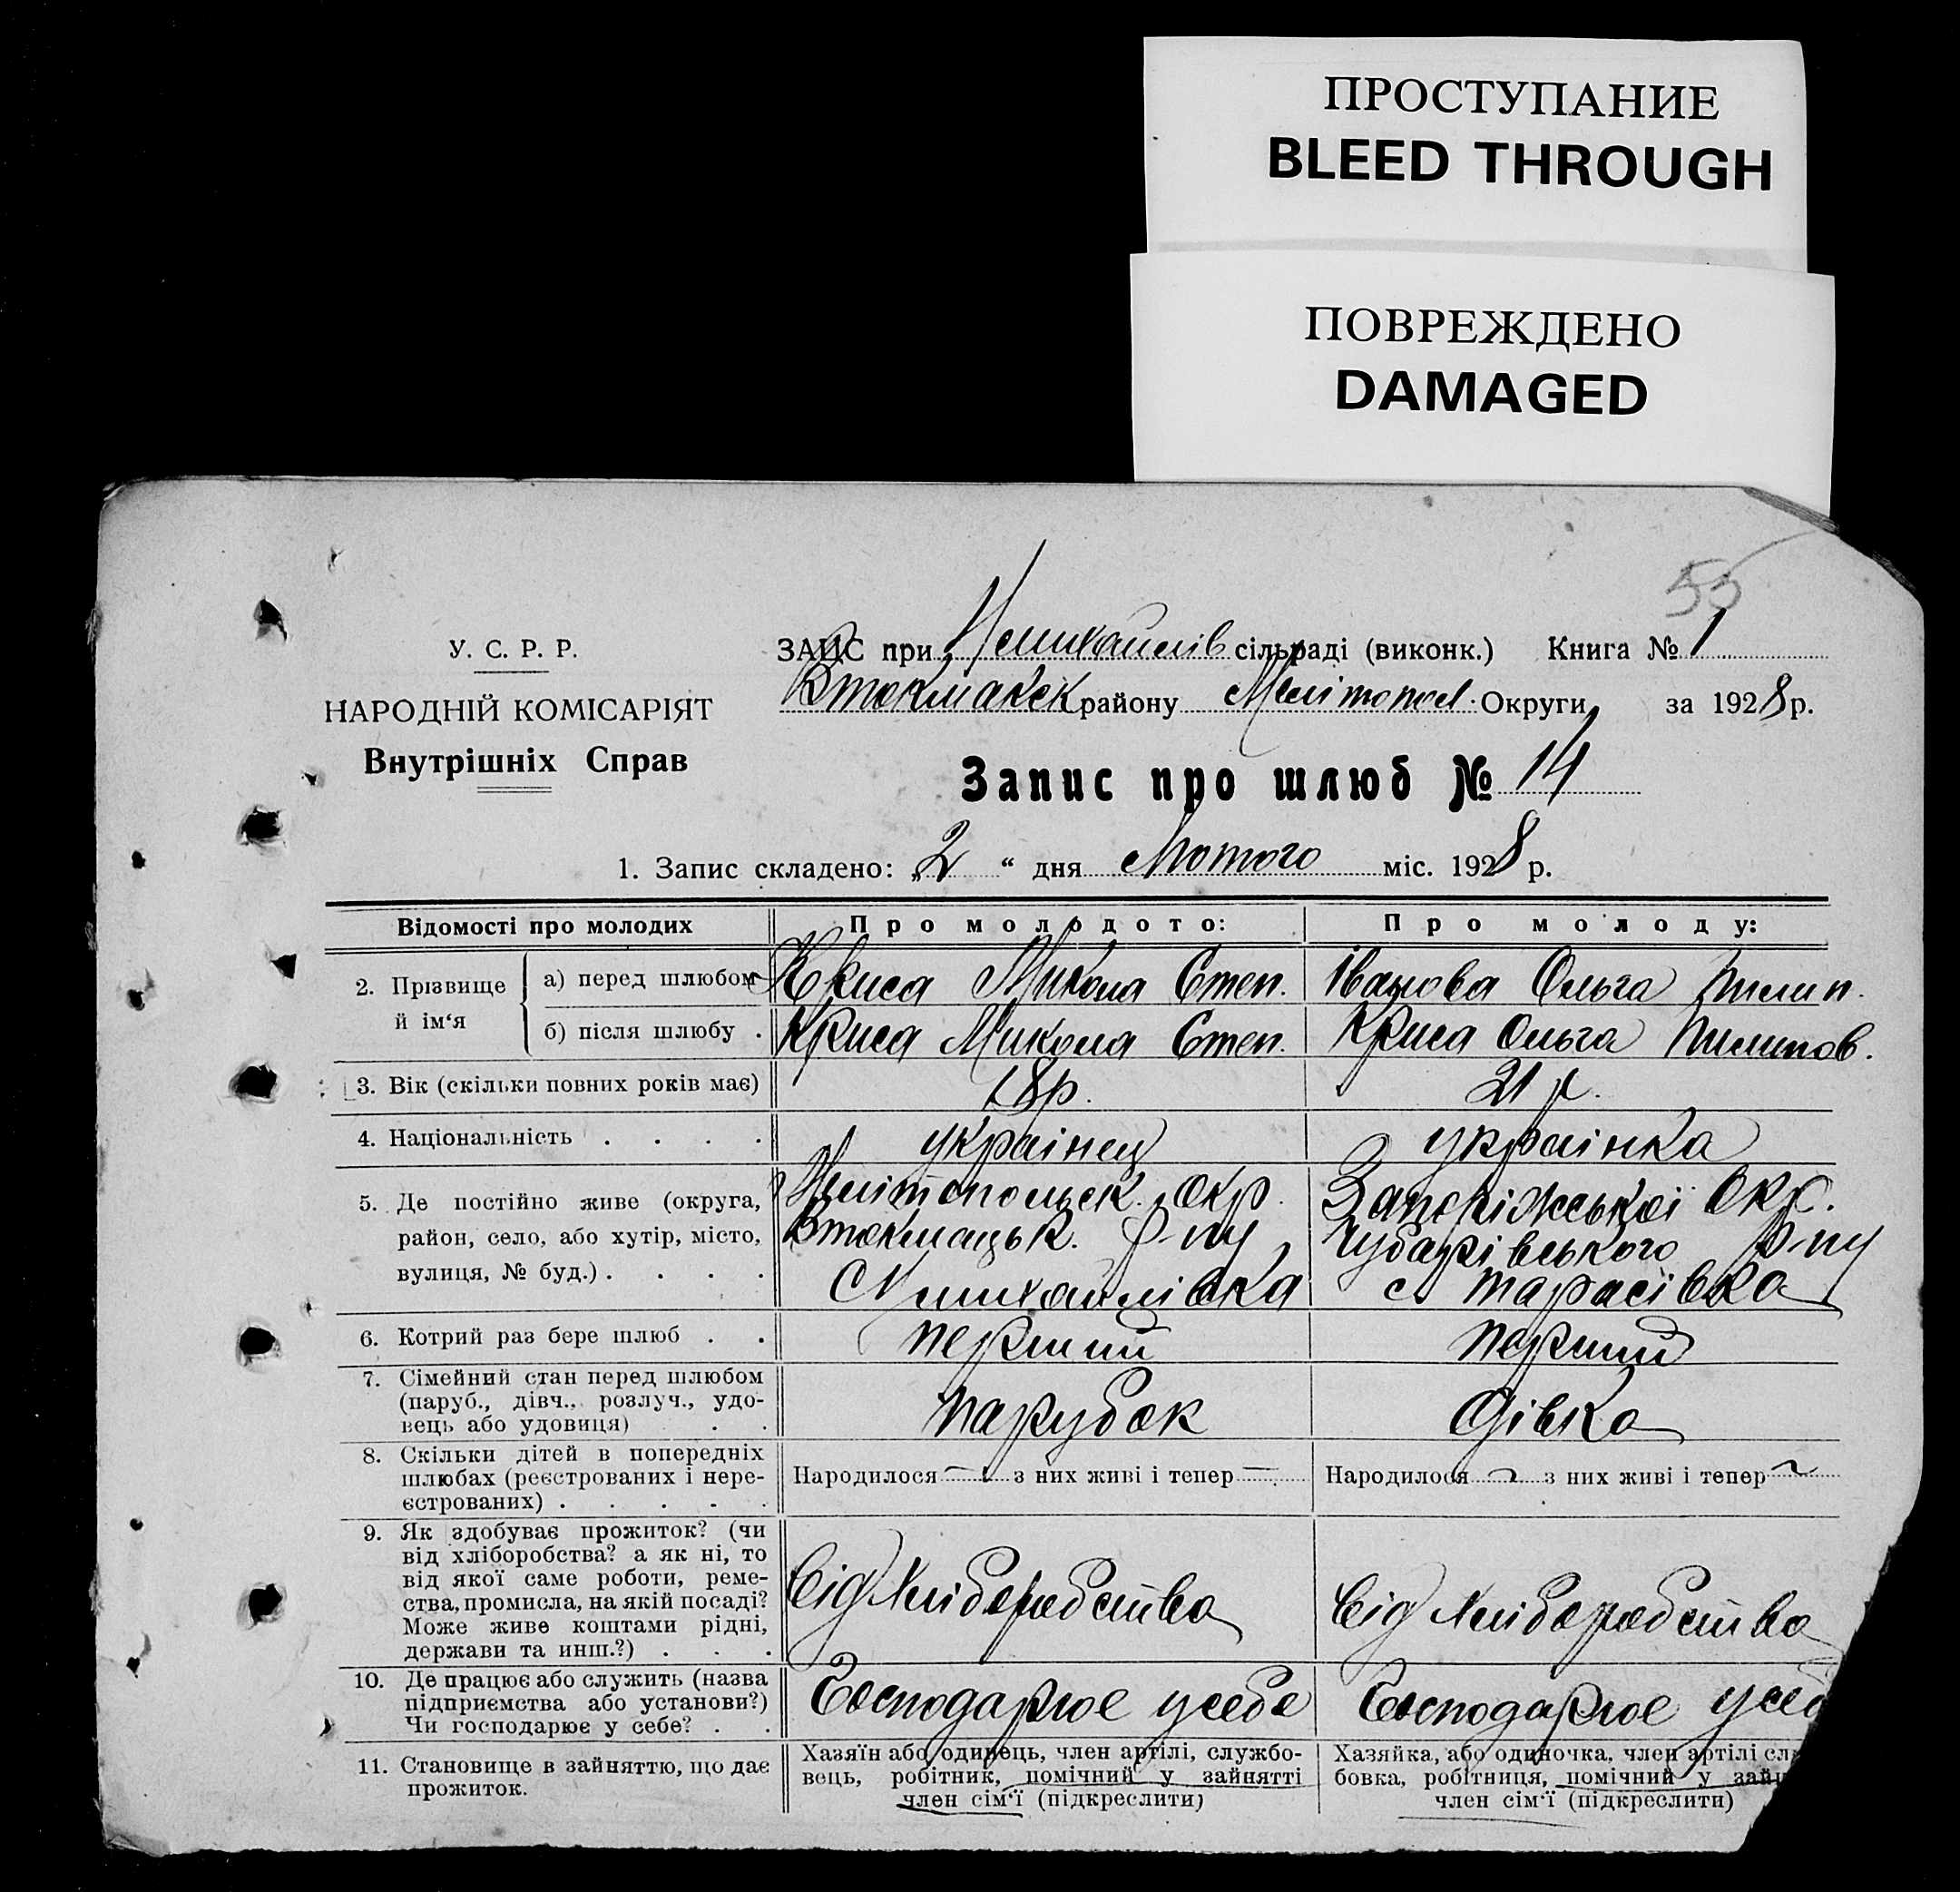 ПРОСТУПАНИЕ
BLEED THROUGH
ПОВРЕЖДЕНО
DAMAGED
55
У. С. Р. Р.
НАРОДНІЙ КОМІСАРІЯТ
Внутрішніх Справ
ЗАЦС при Нмихайлів сільраді (виконк.) Книга № 1
Втокмакск району Мелітопол. Округи за 1928 р.
Запис про шлюб № 14
1. Запис складено: „2“ дня Лютого міс. 1928 р.
Відомості про молодих Про молодого: Про молоду:
2. Прізвище й ім‘я
а) перед шлюбом Криса Микола Степ. Іванова Ольга Пилип.
б) після шлюбу . Криса Микола Степ. Криса Ольга Пилипов.
3. Вік (скільки повних років має) 18 р. 21 р.
4. Національність . . . . українец українка
5. Де постійно живе (округа,
район, село, або хутір, місто,
вулиця, № буд.) . . . .
Мелітопольск. Окр.
Втокмацьк. р-ну
с Нмихайлівка
Запоріжської Окр.
Чубарівського р-ну
с Тарасівка
6. Котрий раз бере шлюб . . перший перший
7. Сімейний стан перед шлюбом
(паруб., дівч., розлуч., удо-
вець або удовиця) . .
парубок дівка
8. Скільки дітей в попередніх
шлюбах (реєстрованих і нере-
єстрованих) . . . . .
Народилося — з них живі і тепер — Народилося ~ з них живі і тепер ~
9. Як здобуває прожиток? (чи
від хліборобства? а як ні, то
від якої саме роботи, реме-
ства, промисла, на якій посаді?
Може живе коштами рідні,
держави та инш.?) . . .
Від хліборобства Від хліборобства
10. Де працює або служить (назва
підприємства або установи?)
Чи господарює у себе? . .
Господарює усебе Господарює усеб
11. Становище в зайняттю, що дає
прожиток.
Хазяїн або одинець, член артілі, службо-
вець, робітник, помічний у зайнятті
член сім‘ї (підкреслити)
Хазяйка, або одиночка, член артілі сл
бовка, робітниця, помічний у зайн
член сім‘ї (підкреслити)